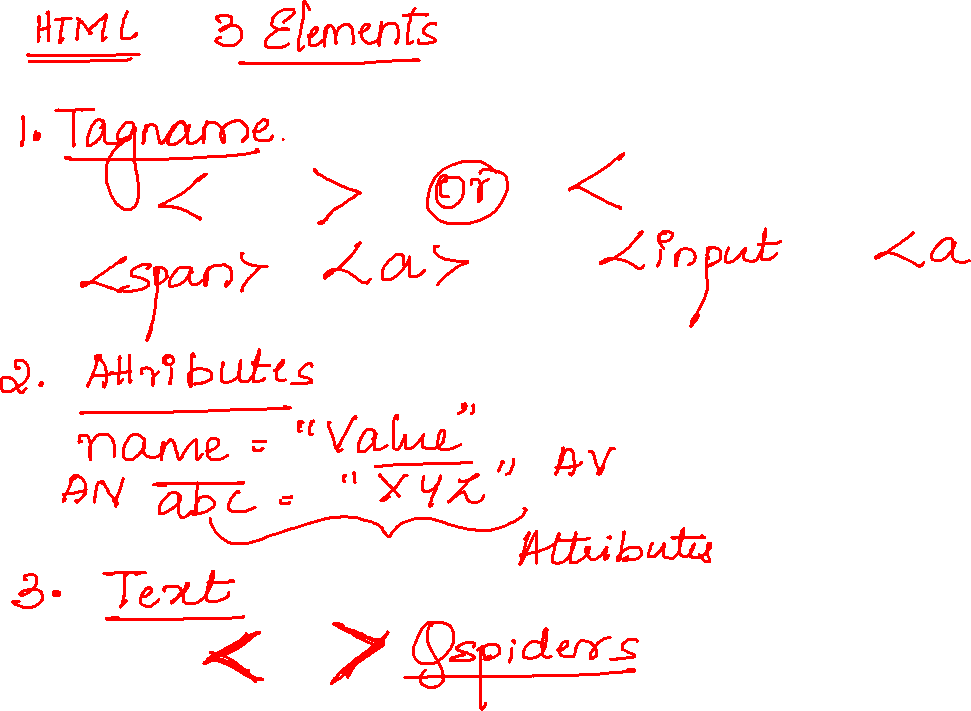 HTML 3 Elements
1. Tagname.
< > or <
<span> <a> <input <a
2. Attributes
name = "Value"
AN abc = "XYZ" AV
Attributes
3. Text
< > Qspiders